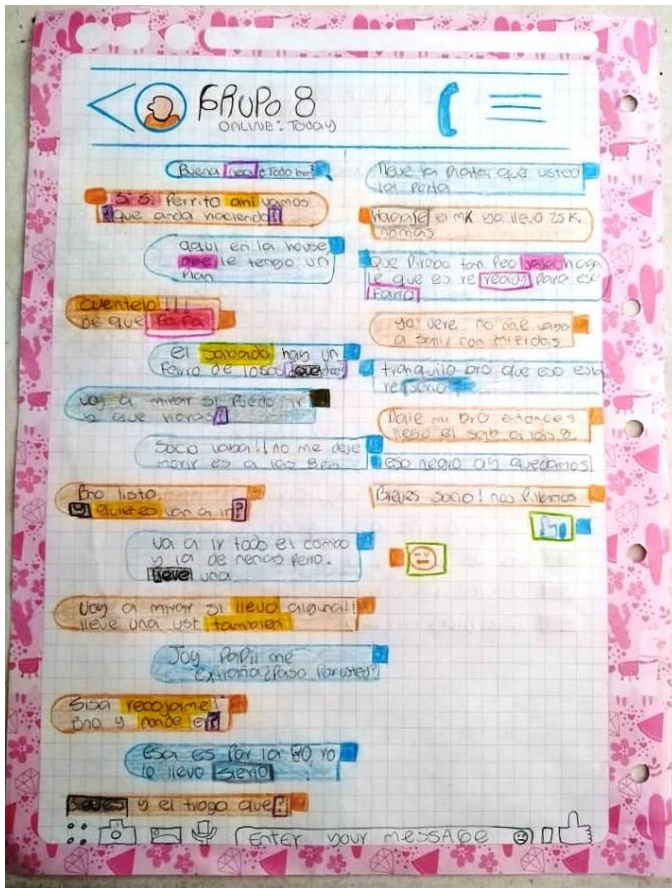 GRUPO 8
ONLINE: TODAY
Buena
Todo bien?
Si Si Perrito ahi vamos
que anda haciendo?
aqui en la house
le tengo un
Plan
cuentelo!!!
de que Papa
el sabado hay un
Farro de locos
voy a mirar si Puedo ir
a que horas?
Socio vaya!! no me deje
morir es a las 8Pm
Bro listo.
quienes van a ir?
va a ir todo el combo
y la de nenas Pero.
lleve una
Voy a mirar si llevo alguna!!
lleve una ust tambien
Joy Papii me
extraña ¿Paso Por usted?
Sisa recojame!
Bro y donde es?
Esa es Por la 80, yo
lo llevo Sieno
y el trago que?
lleve la Plata que usted
la Ponga
Hagale el mk yo llevo 25 K
nomas
Que Pirobo tan Peo haga
le que es re Para ese
Farro
Ya vere no me vaya
a salir con mierdas
tranquilo bro que eso esta
re
Dale mi bro entonces
llego el sab a las 8
eso negro asi quedamos
Breves socio! nos Pillamos
Enter your message